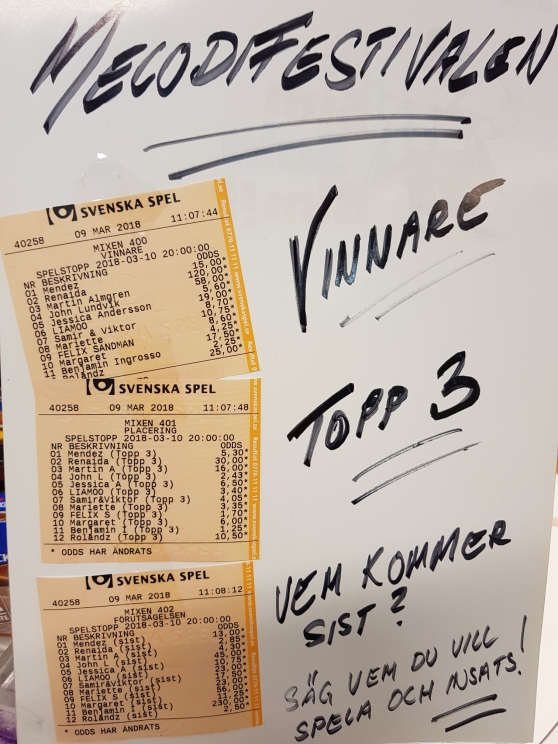 MELODIFESTIVALEN
SVENSKA SPEL
40258 09 MAR 2018 11:07:44
MIXEN 400
VINNARE
SPELSTOPP 2018-03-10 20:00:00
NR BESKRIVNING ODDS
01 Mendez 15,00*
02 Renaida 120,00*
03 Martin Almgren 58,00*
04 John Lundvik 5,60*
05 Jessica Andersson 19,00*
06 LIAMOO 8,70*
07 Samir & Viktor 10,75*
08 Mariette 8,60*
09 FELIX SANDMAN 4,25*
10 Margaret 17,50*
11 Benjamin Ingrosso 2,25*
12 Rolandz 25,00*
VINNARE
SVENSKA SPEL
40258 09 MAR 2018 11:07:48
MIXEN 401
PLACERING
SPELSTOPP 2018-03-10 20:00:00
NR BESKRIVNING ODDS
01 Mendez (Topp 3) 5,30*
02 Renaida (Topp 3) 30,00*
03 Martin A (Topp 3) 16,00*
04 John L (Topp 3) 2,43*
05 Jessica A (Topp 3) 6,50*
06 LIAMOO (Topp 3) 3,40*
07 Samir&Viktor (Topp 3) 4,05*
08 Mariette (Topp 3) 3,35*
09 FELIX S (Topp 3) 1,70*
10 Margaret (Topp 3) 6,00*
11 Benjamin I (Topp 3) 1,25*
12 Rolandz (Topp 3) 10,50*
* ODDS HAR ÄNDRATS
TOPP 3
SVENSKA SPEL
40258 09 MAR 2018 11:08:12
MIXEN 402
FÖRUTSÄGELSEN
SPELSTOPP 2018-03-10 20:00:00
NR BESKRIVNING ODDS
01 Mendez (sist) 13,00*
02 Renaida (sist) 2,85*
03 Martin A (sist) 4,30*
04 John L (sist) 45,00*
05 Jessica A (sist) 10,75*
06 LIAMOO (sist) 23,00*
07 Samir&Viktor (sist) 17,50*
08 Mariette (sist) 23,00*
09 FELIX S (sist) 56,00*
10 Margaret (sist) 11,25*
11 Benjamin I (sist) 230,00*
12 Rolandz (sist) 2,50*
* ODDS HAR ÄNDRATS
VEM KOMMER
SIST?
SÄG VEM DU VILL
SPELA OCH INSATS!